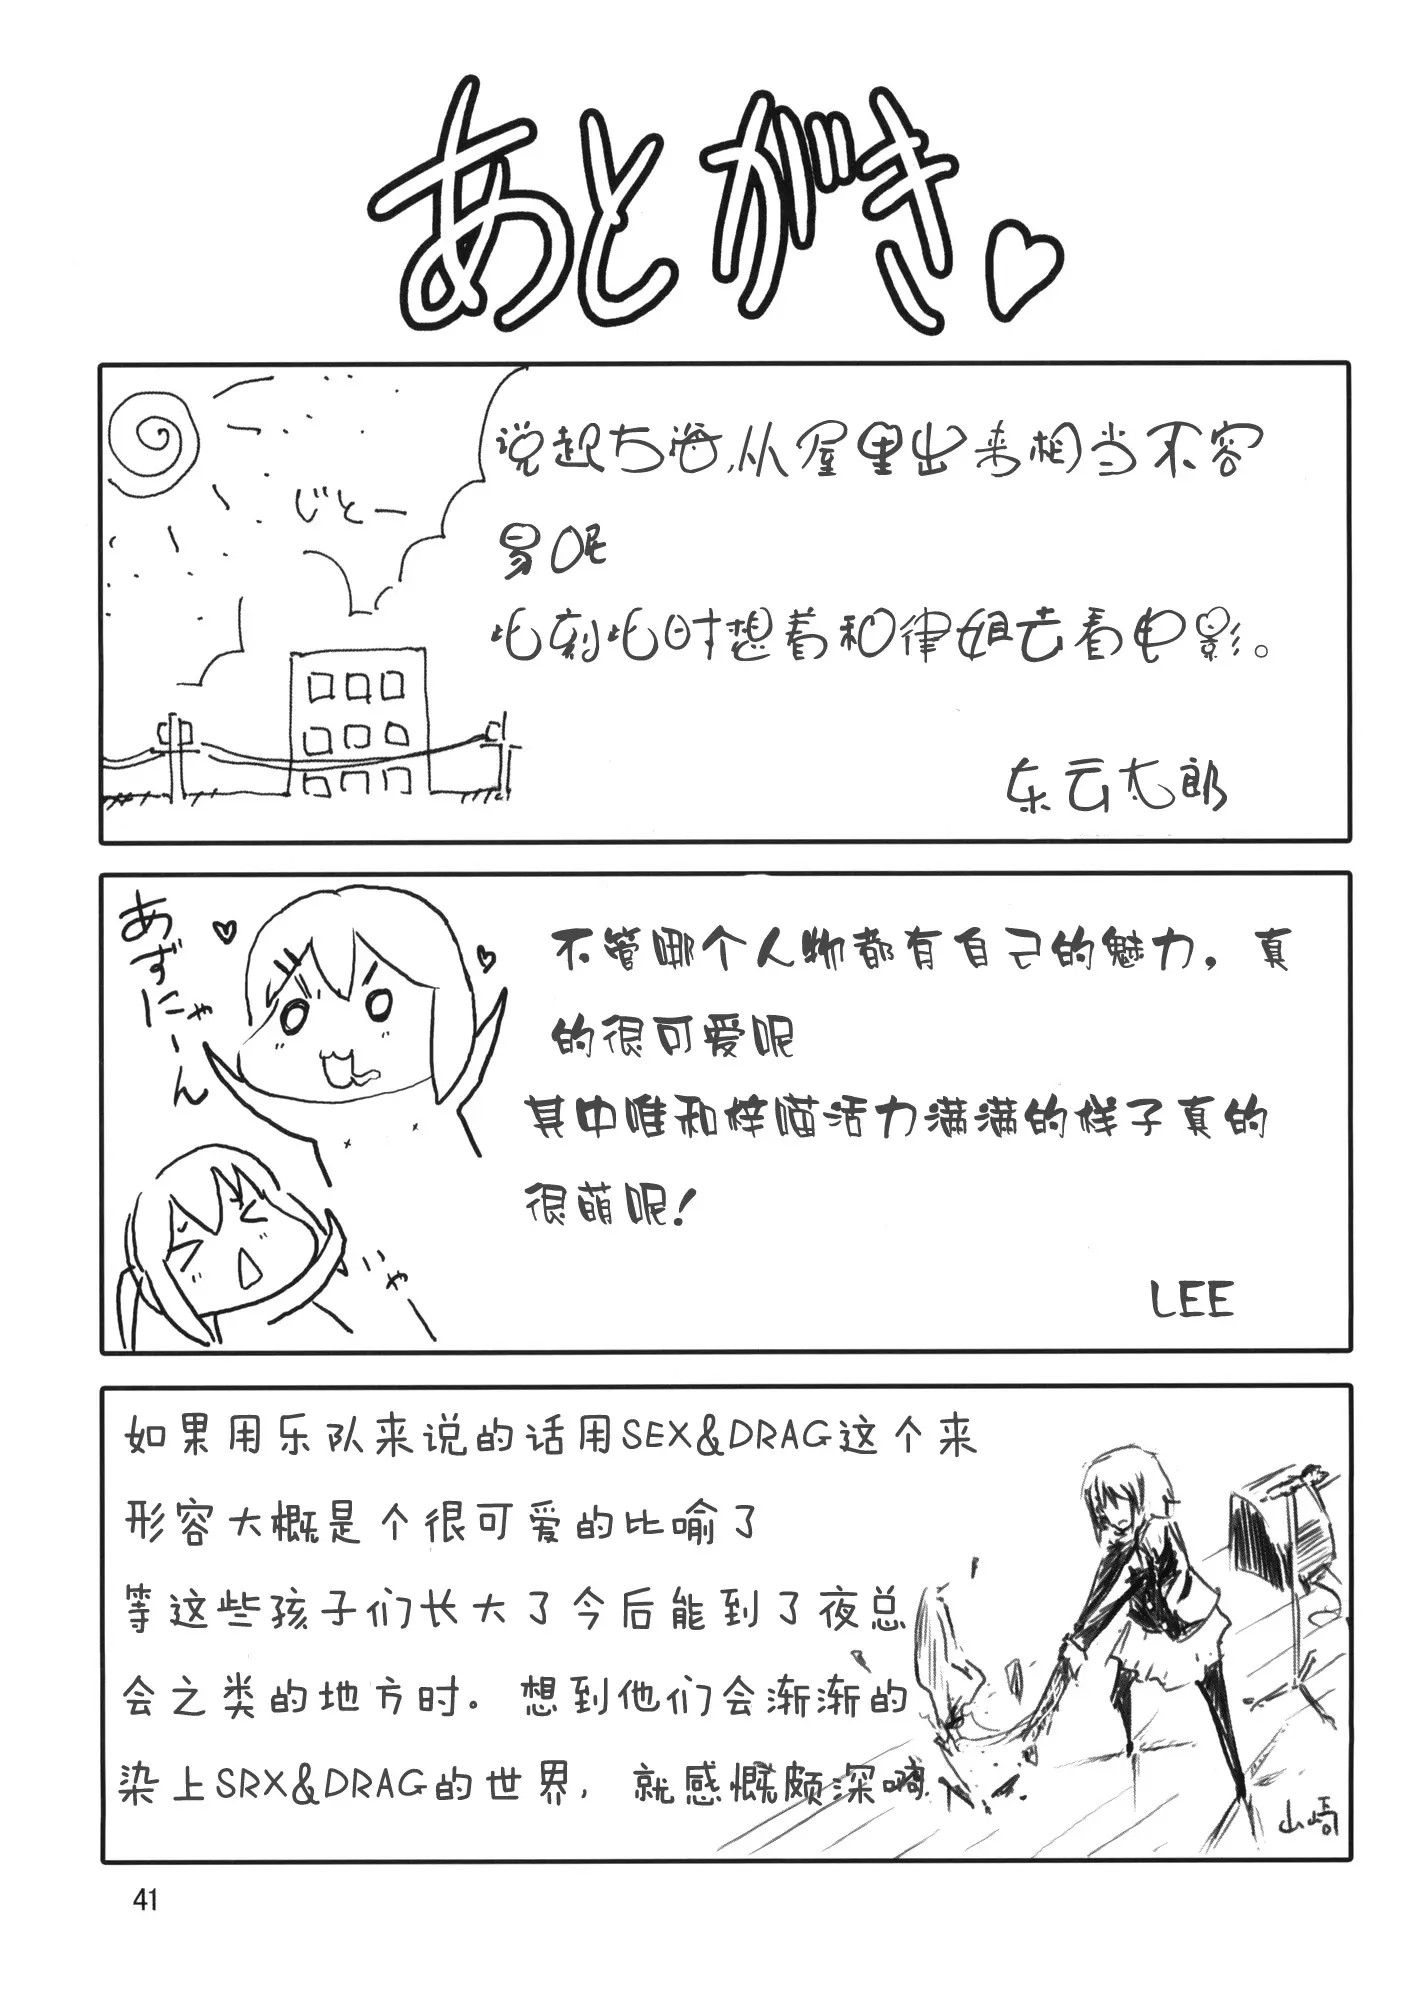 あとがき♡
じとー
说起大海,从屋里出来相当不容
易呢
此刻此时想着和律姐去看电影。
东云太郎
あずにゃーん
不管哪个人物都有自己的魅力，真
的很可爱呢
其中唯和梓喵活力满满的样子真的
很萌呢！
いやー
LEE
如果用乐队来说的话用SEX&DRAG这个来
形容大概是个很可爱的比喻了
等这些孩子们长大了今后能到了夜总
会之类的地方时。想到他们会渐渐的
染上SRX&DRAG的世界，就感慨颇深啊
山崎
41